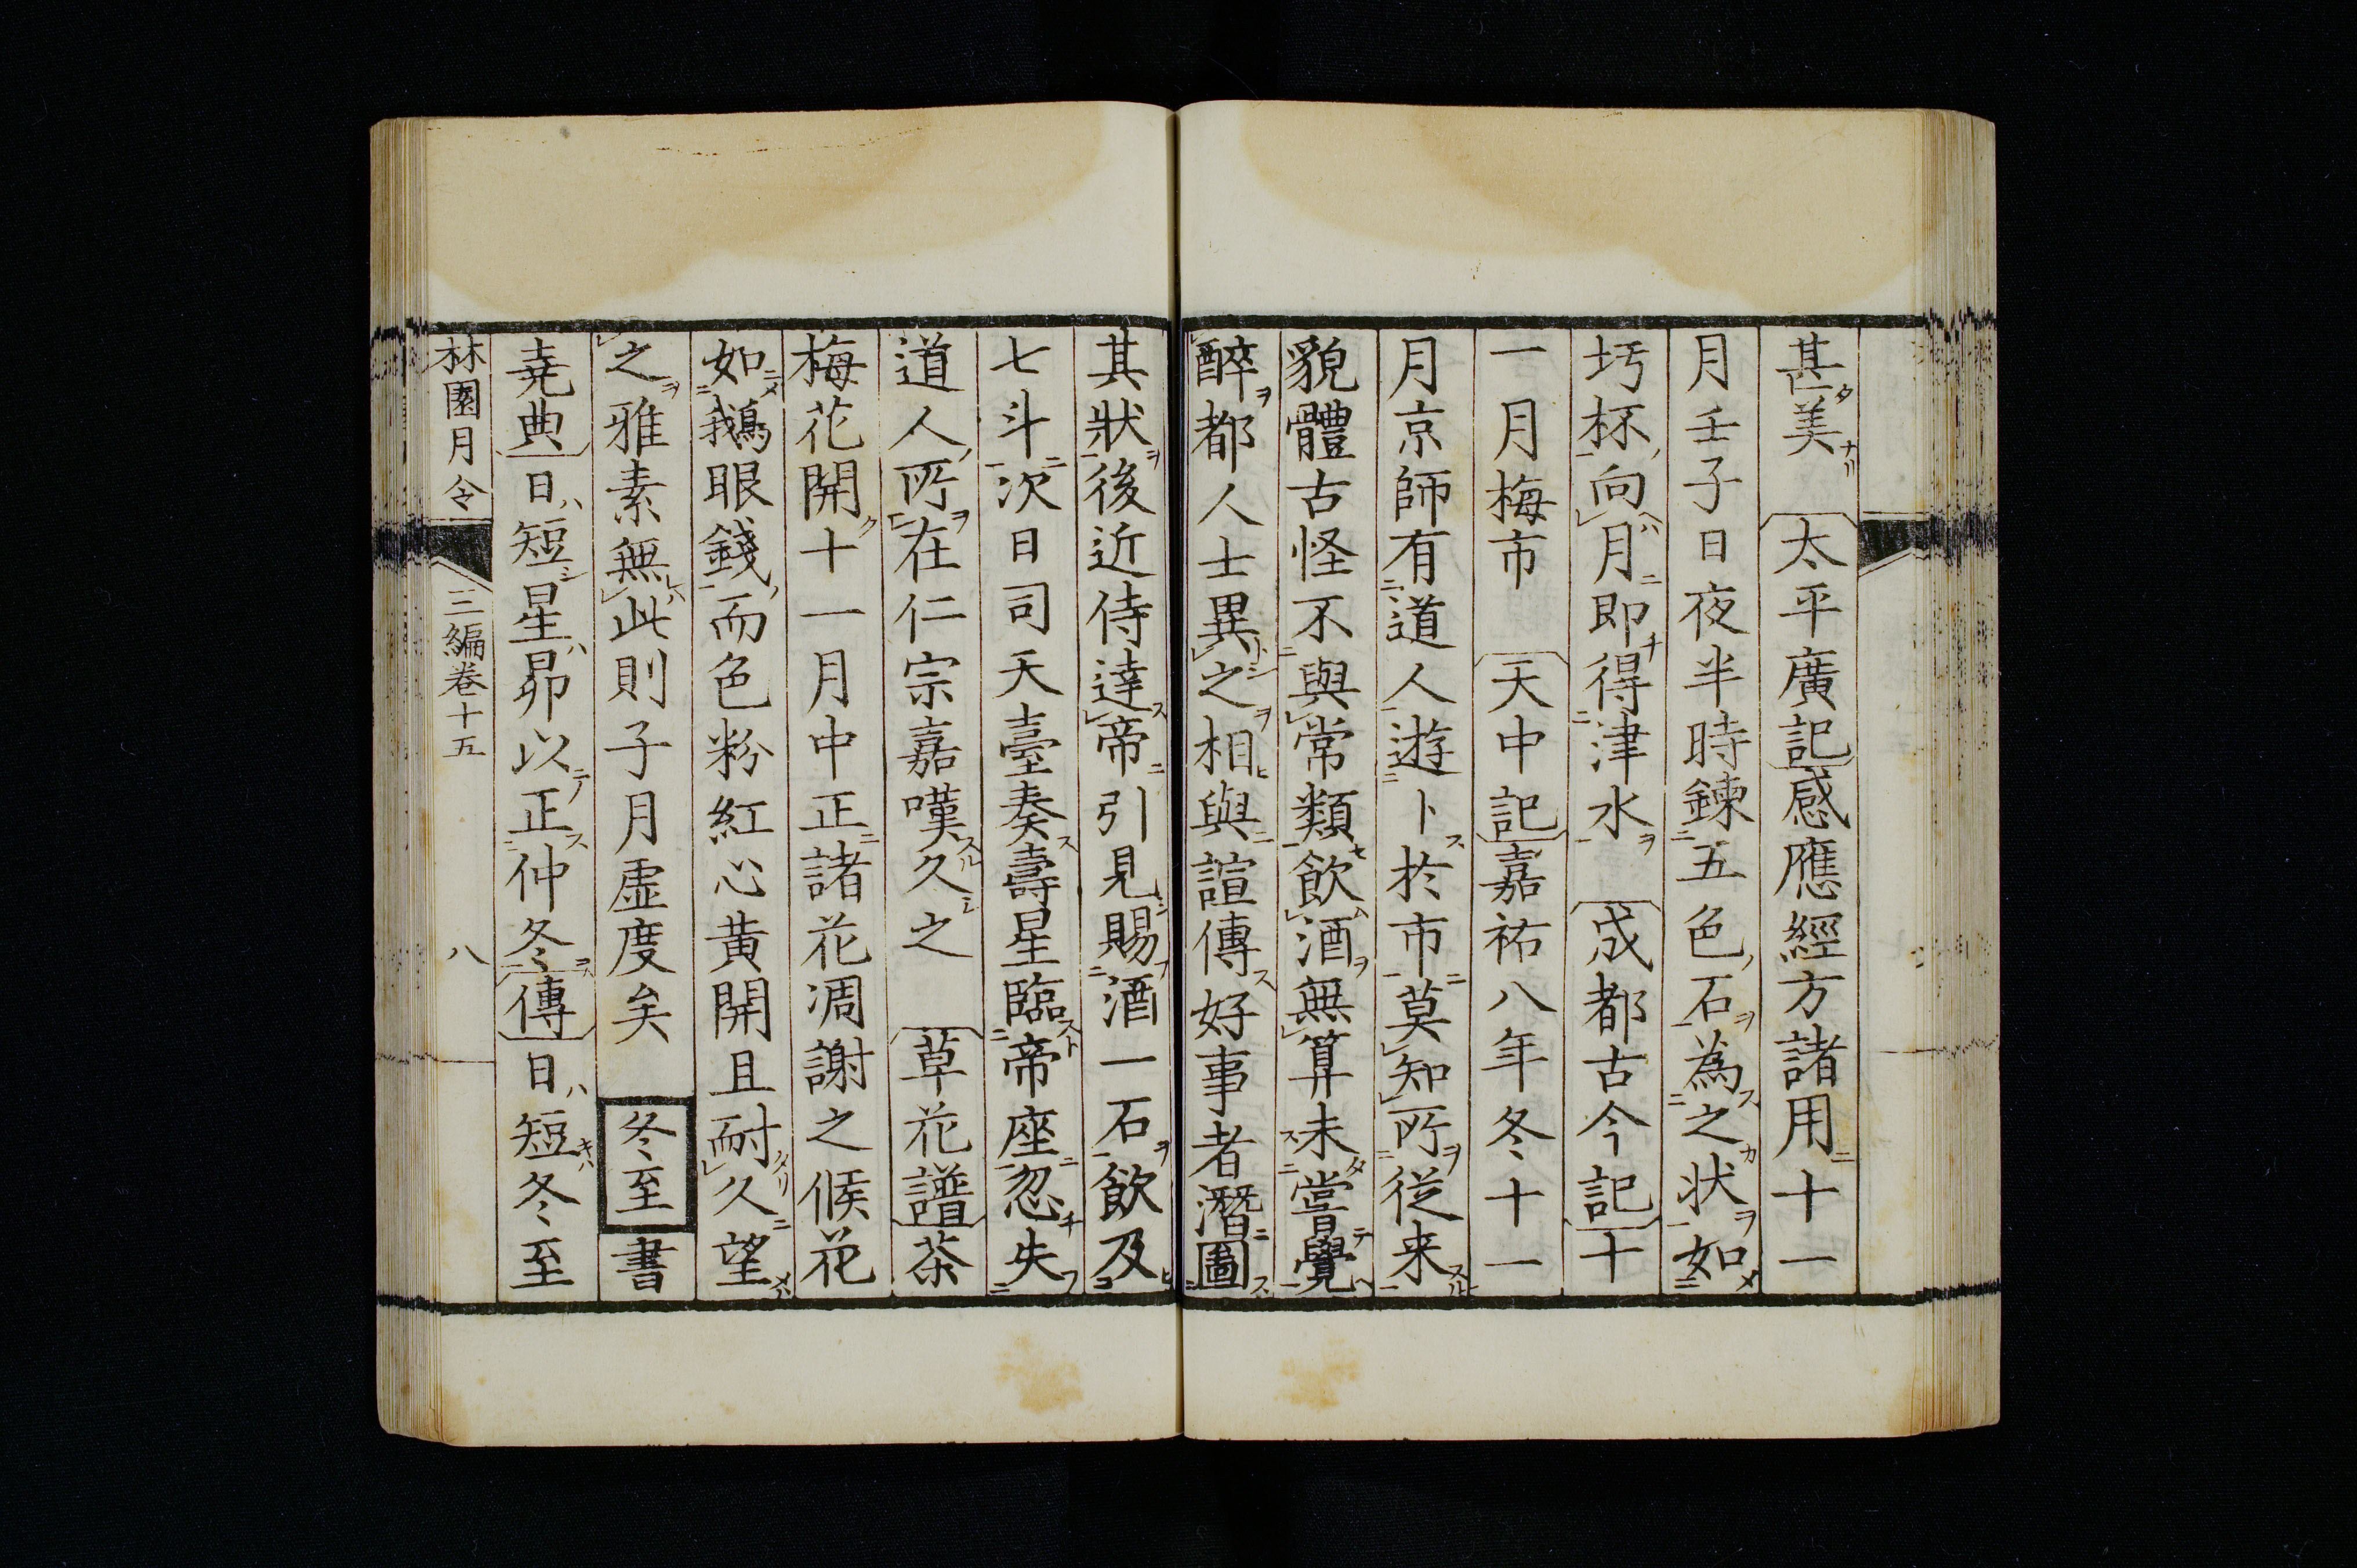 甚美　太平廣記感應經方諸用十一
月壬子日夜半時鍊五色石為之状如
圬杯向月即得津水　成都古今記十
一月梅市　天中記嘉祐八年冬十一
月京師有道人遊卜於市莫知所従来
貌體古怪不與常類飲酒無算未嘗覺
醉都人士異之相與諠傳好事者潛圖
其狀後近侍達帝引見賜酒一石飲及
七斗次日司天臺奏壽星臨帝座忽失
道人所在仁宗嘉嘆久之　草花譜茶
梅花開十一月中正諸花凋謝之候花
如鵝眼錢而色粉紅心黄開且耐久望
之雅素無此則子月虚度矣　冬至書
堯典日短星昴以正仲冬傳日短冬至
林園月令　三編巻十五　八